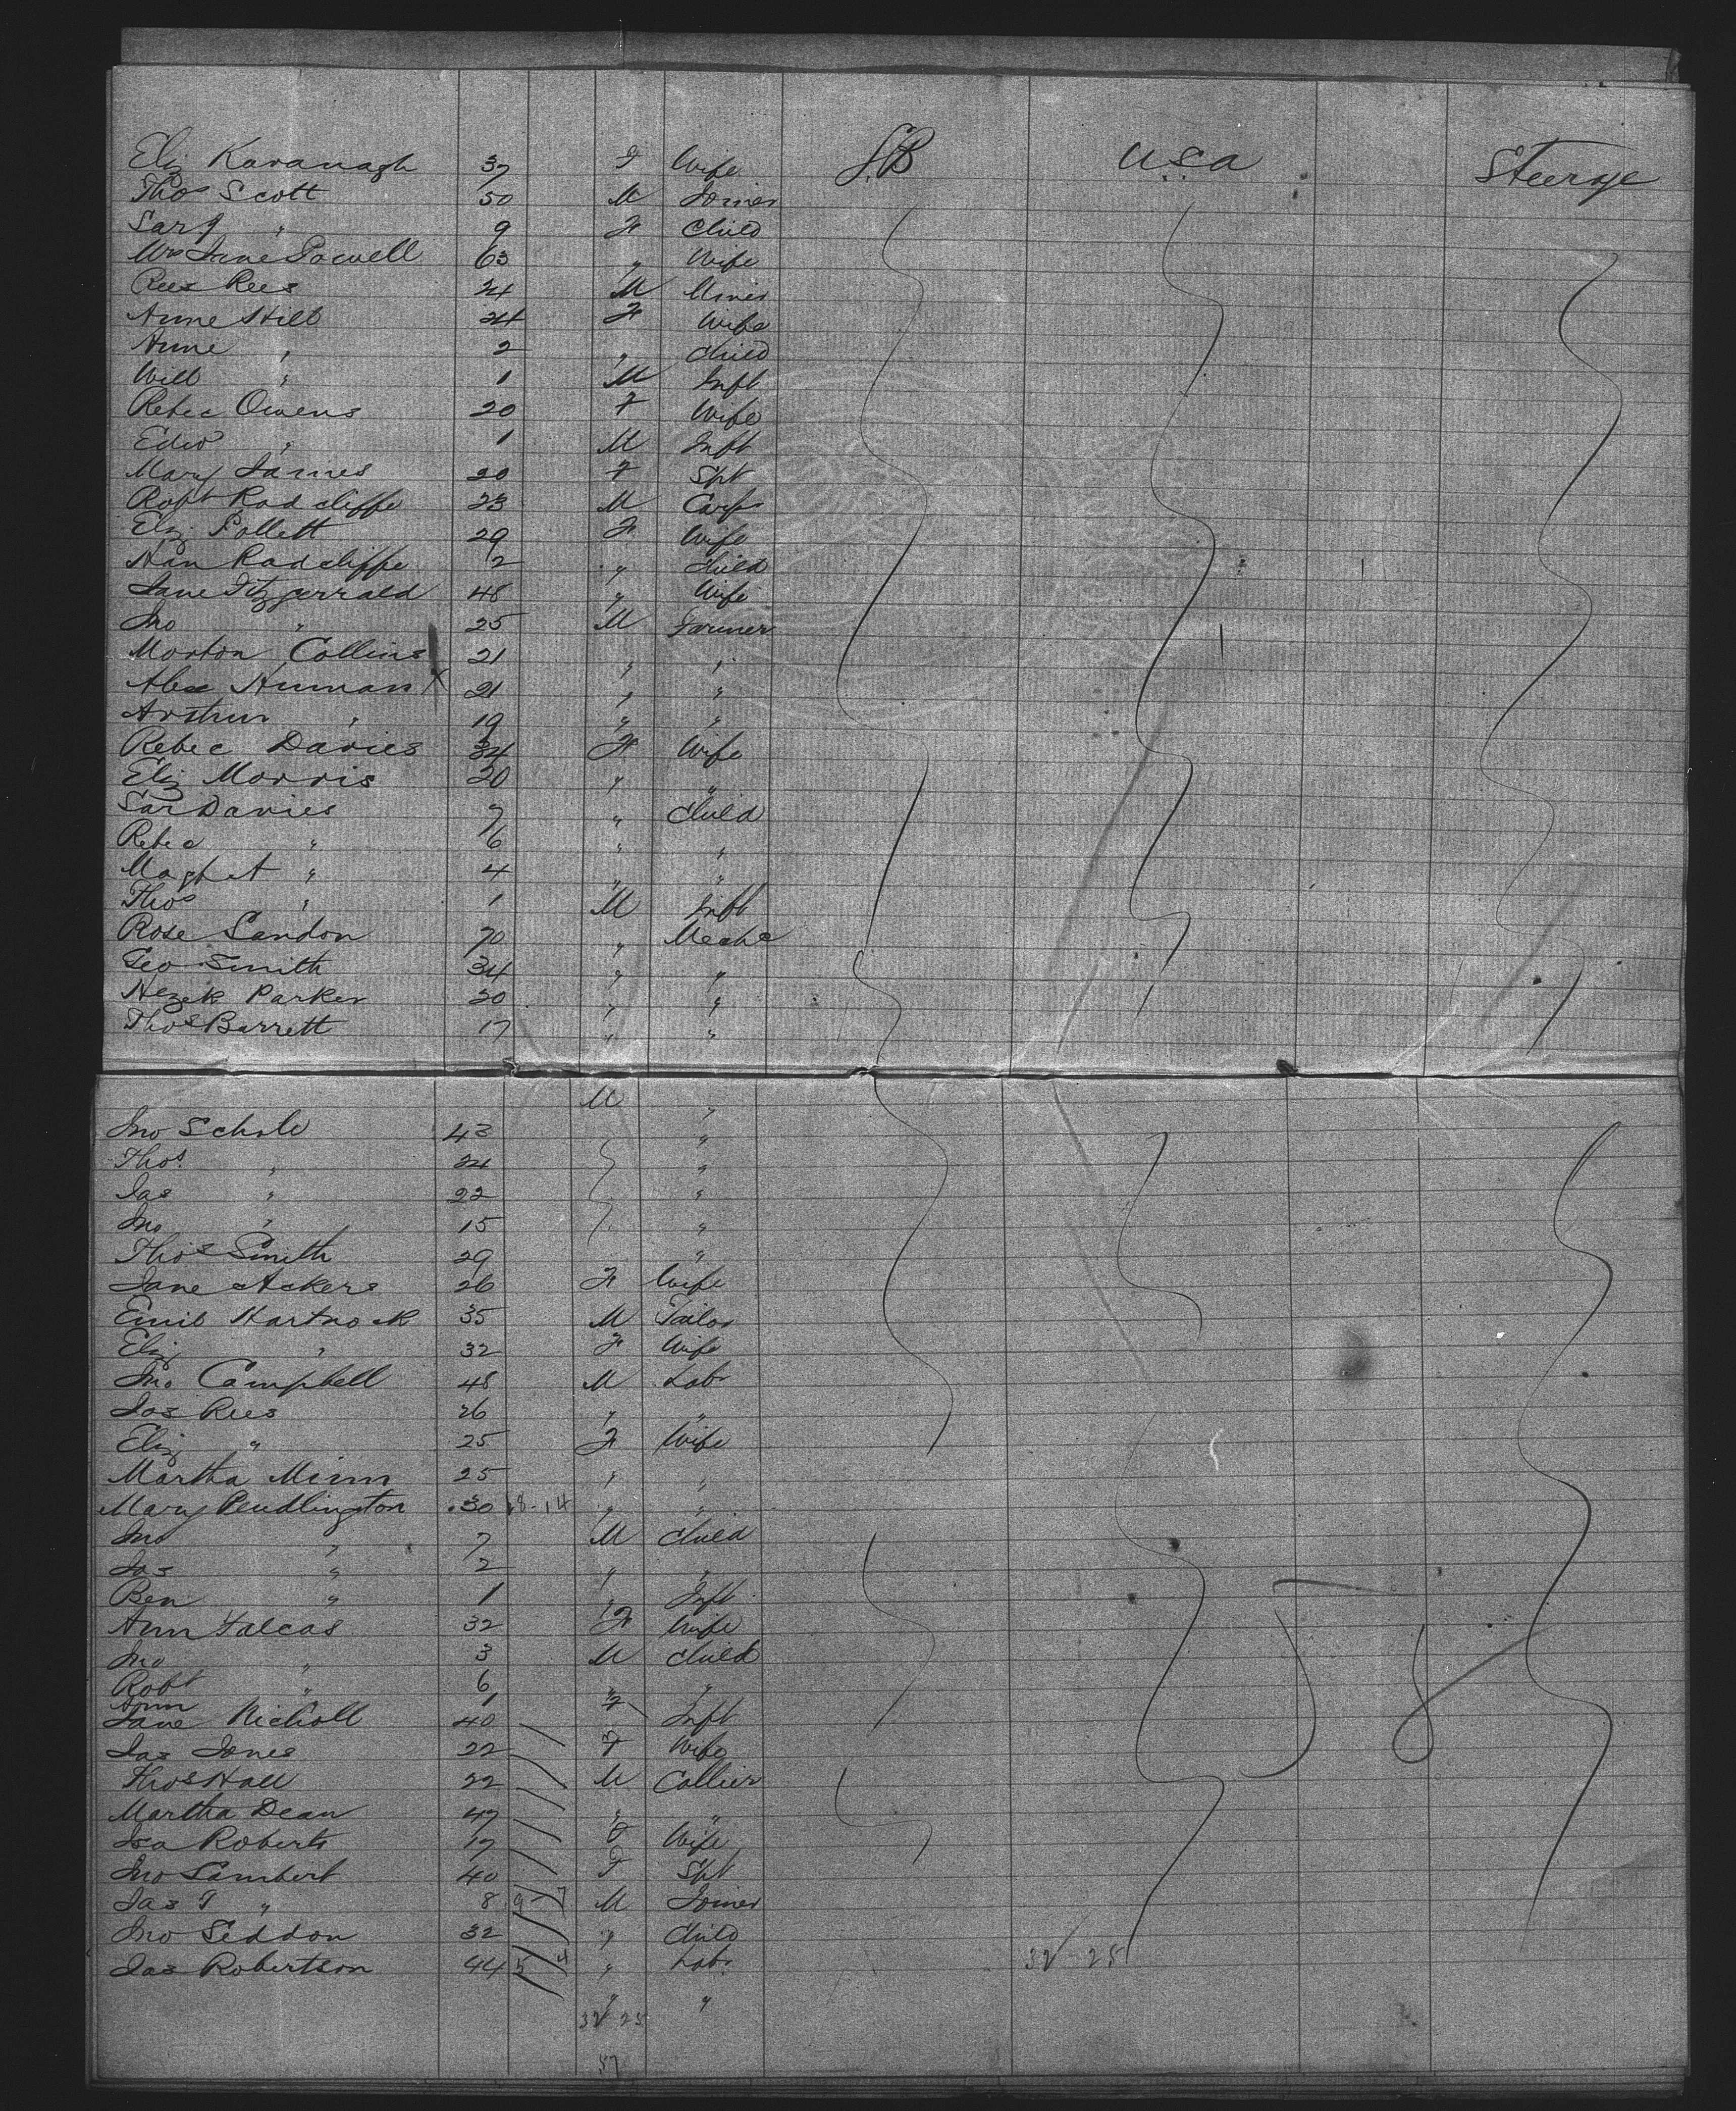 Eliz Kavanagh 37 F Wife G.B U.S.a Steerage
Thos Scott 50 M Joiner
Sar J " 9 F Child
Mrs Jane Powell 63 " Wife
Rees Rees 24 M Miner
Anne Hill 24 F Wife
Anne " 2 " Child
Will " 1 M Inft
Rebec Owens 20 F Wife
Edwd " 1 M Inft
Mary James 20 F Spt
Robt Radcliffe 23 M Carp
Eliz Follett 29 F Wife
Han Radcliffe 2 " Child
Jane Fitzgerrald 48 " Wife
Jno " 25 M Farmer
Morton Collins 21 " "
Alex Human X 21 " "
Arthur " 19 " "
Rebec Davies 34 F Wife
Eliz Morris 20 " "
Sar Davies 7 " Child
Rebec " 6 " "
Magh et " 4 " "
Thos " 1 M Inft
Rose Landon 70 " Mechc
Geo Smith 34 " "
Hezek Parker 20 " "
Thos Barrett 17 " "
M "
Jno Schole 43 "
Thos " 24 "
Jas " 22 "
Jno " 15 "
Thos Smith 29 "
Jane Ackers 26 F Wife
Emil Hartnock 35 M Tailor
Eliz " 32 F Wife
Jno Campbell 48 M Labr
Jos Rees 26 " "
Eliz " 25 F Wife
Martha Minn 25 " "
Mary Pendlington 30 18-14 " "
Jno " 7 M Child
Jos " 2 " "
Ben " 1 " Inft
Ann Falcas 32 F Wife
Jno " 3 M Child
Robt " 6 " "
Ann 1 F Inft
Jane Nicholl 40 F Wife
Jas Jones 22 M Collier
Thos Hall 22 " "
Martha Dean 47 F Wife
Isa Roberts 17 F Spt
Jno Lambert 40 M Joiner
Jas T " 8 " Child
Jno Seddon 32 " Labr
Jas Robertson 44 " "
32 25
32 25
57